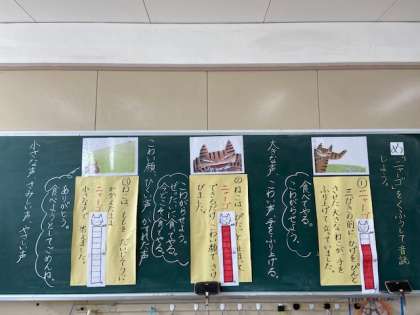 め
「ニャーゴ」をくふうして音読
しよう。
①ニャーゴ
三びきの前に
ふりあげて立っていました。
食べてやる。
こわがらせてやる。
大きな声 こわい声 手をふり上げる。
ニャーゴ
できるだけこわい顔でさけ
びました。
こわがらせてやる。
ぜったいに食べてやる。
こわい顔 ひくい声 かすれた声
ねこは、ももをだいじそうに
かかえたまま、
ニャーゴ
小さな声で
ありがとう。
食べようとしてごめんね。
小さな声 さみしい声 やさしい声